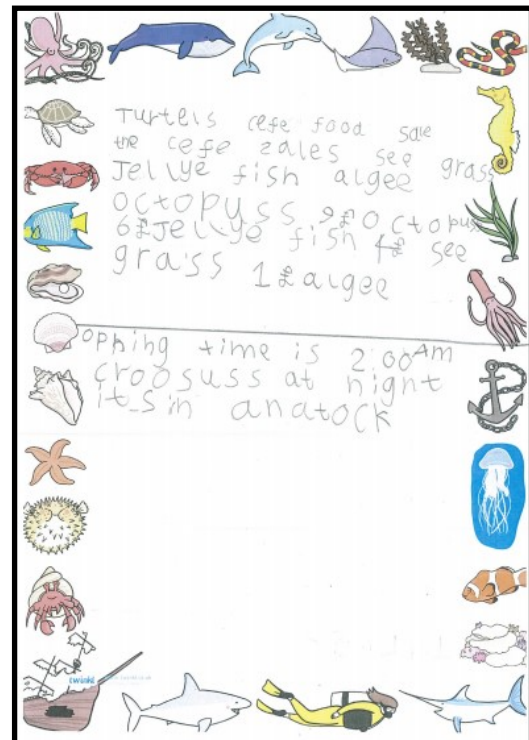 Turtels cefe food sale
the cefe zales see grass
Jellye fish algee
octopuss 9£ octopuss
6£ Jellye fish 4£ see
grass 1£ algee
opning time is 2:00 Am
croosuss at night
it_s in anatock
twinkl